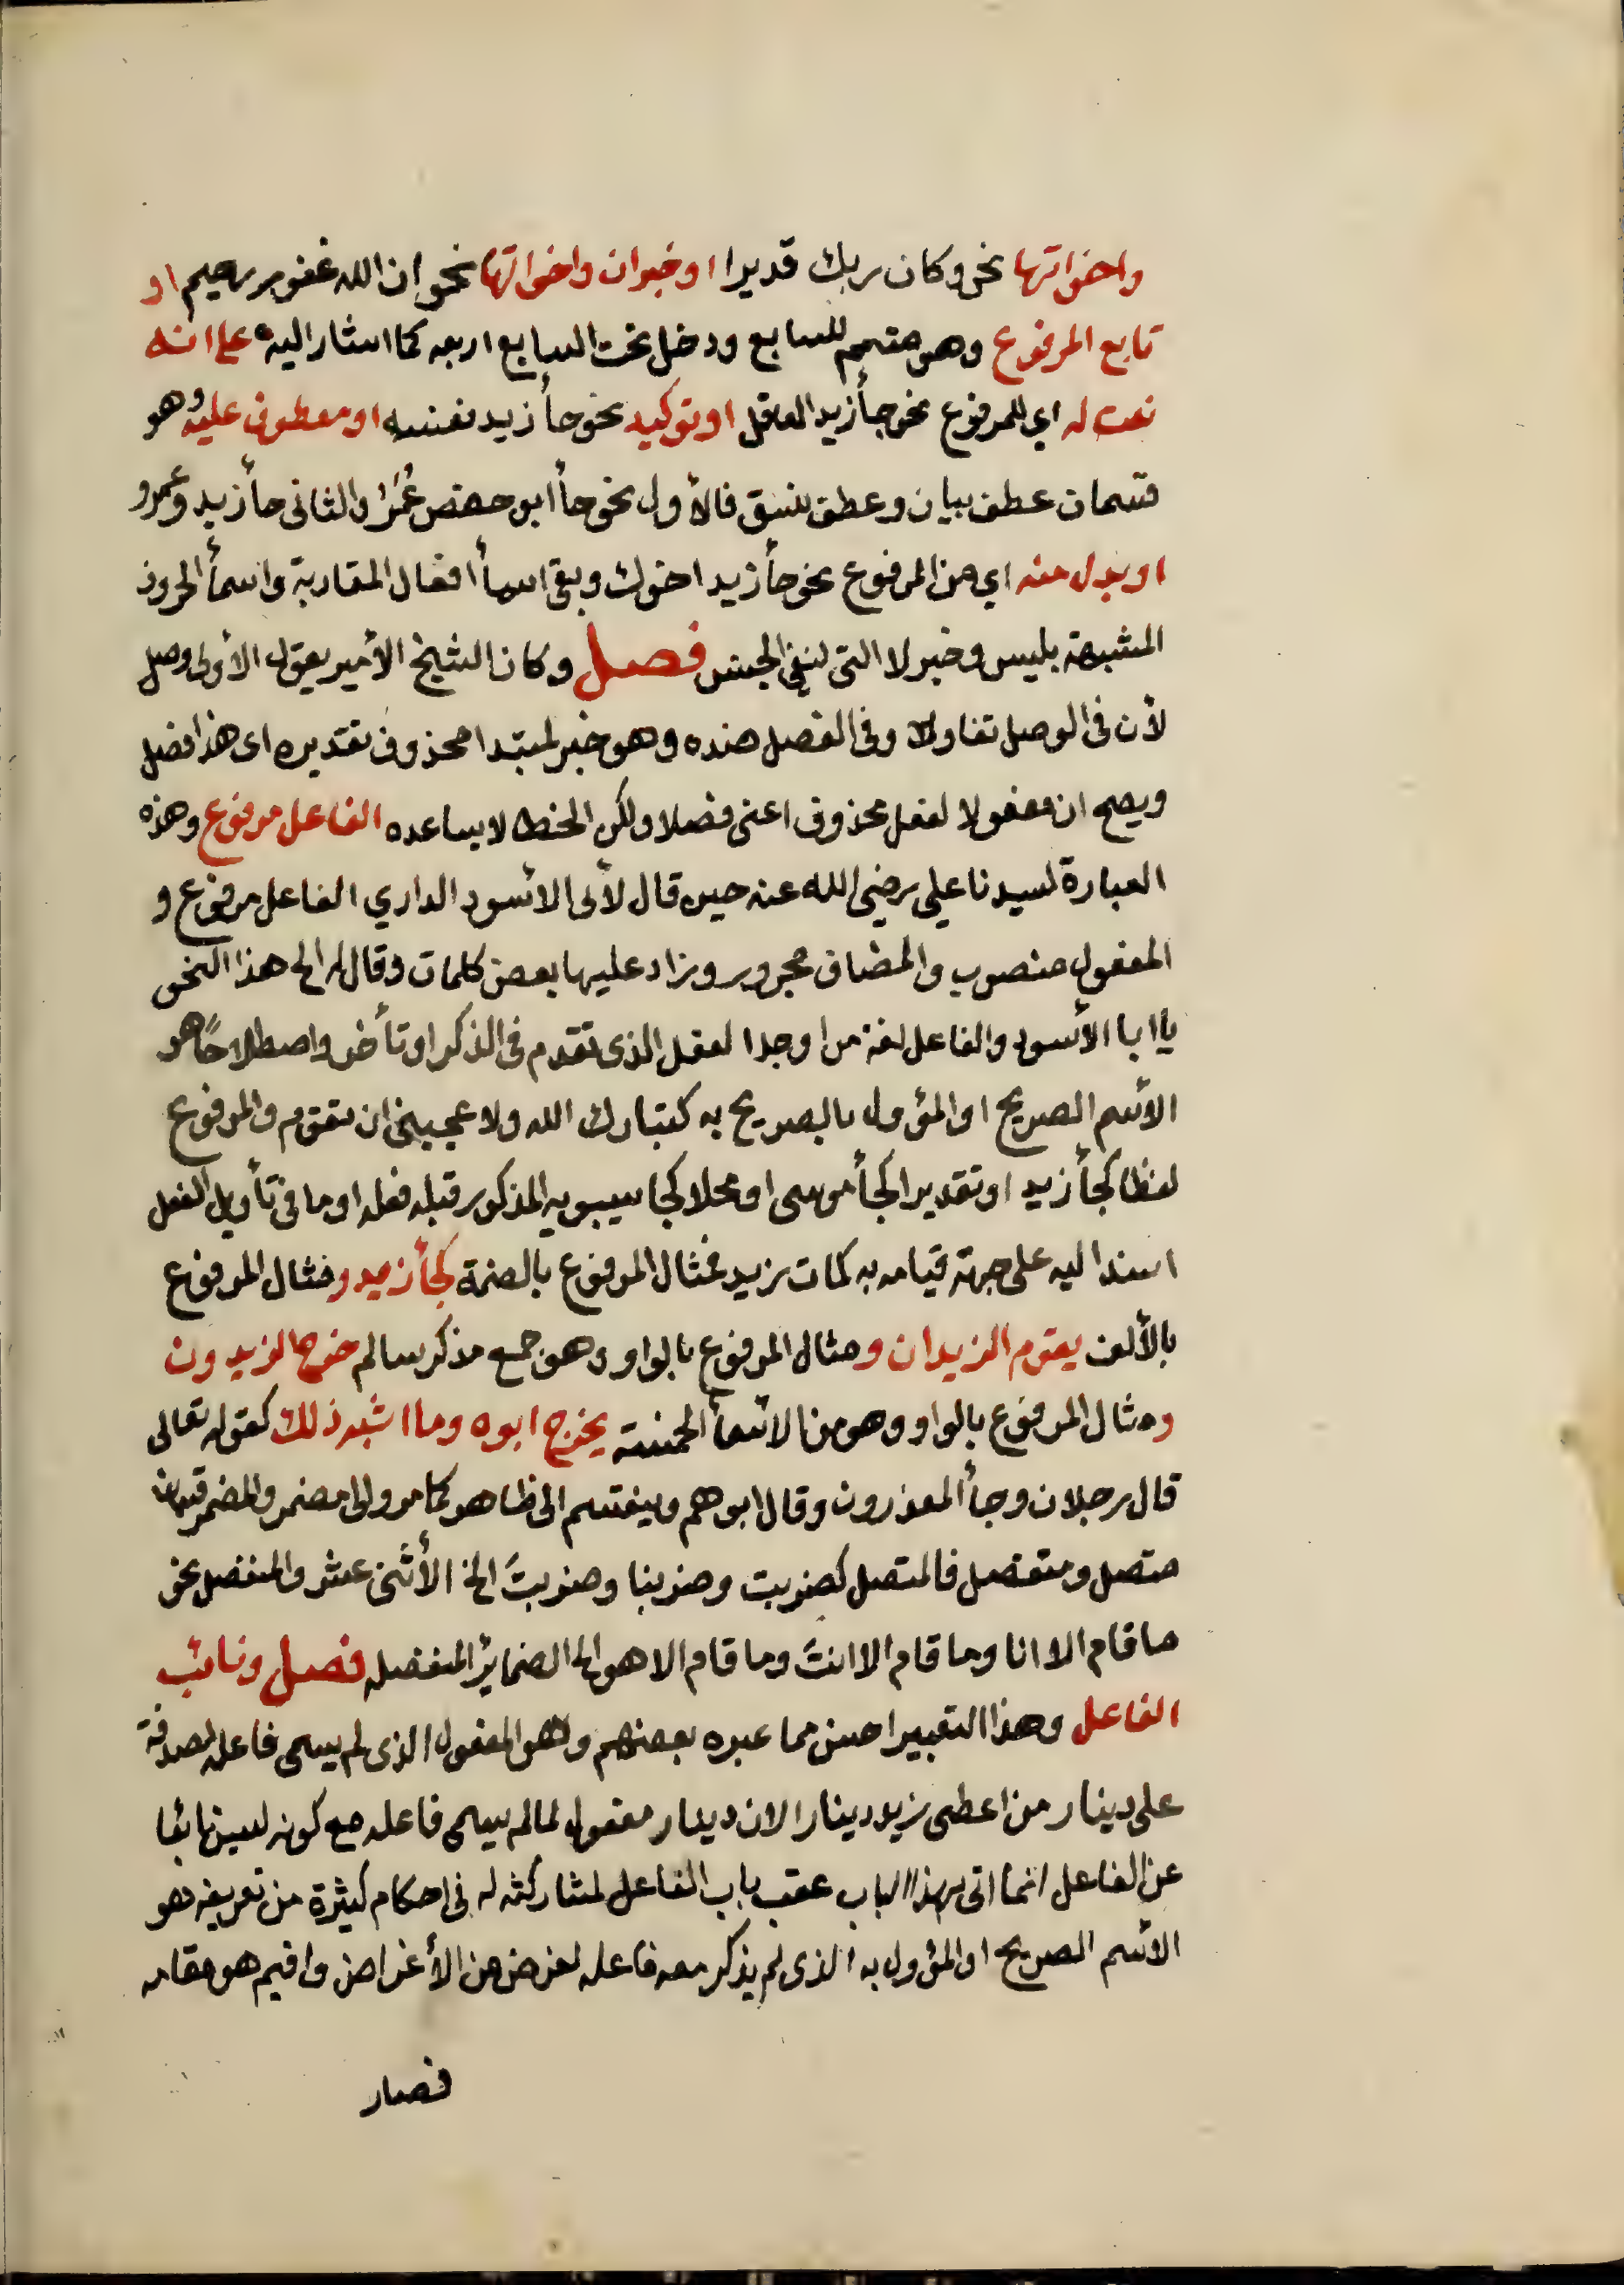 واخواتها نحو وكان ربك قديرا او خبران واخواتها نحو إن الله غفور رحيم او
تابع المرفوع وهو متمم للسابع ودخل تحت السابع اربعه كما اشار اليه على انه
نعت له اي للمرفوع نحو جأ زيد العاقل او توكيد نحو جأ زيد نفسه او معطوف عليه وهو
قسمان عطف بيان وعطف نسق فالأول نحو جأ ابو حفص عُمَرُ والثانى جأ زيد وعمرو
او بدل منه اي من المرفوع نحو جأ زيد اخوك وبقى اسمأ افعال المقاربة واسمأ الحروف
المشبهة بليس وخبر لا التى لنفي الجنس فصل وكان الشيخ الأمير يقول الأولى وصل
لأن فى الوصل تفاولا وفى الفصل ضده وهو خبر لمبتدا محذوف تقديره اى هذا فصل
ويصح ان مفعولا لفعل محذوف اعنى فصلا ولكن الخط لا يساعده الفاعل مرفوع وهذه
العبارة لسيدنا علي رضي الله عنه حين قال لأبى الأسود الداري الفاعل مرفوع و
المفعول منصوب والمضاف مجرور وزاد عليها بعض كلمات وقال له الح هذا النحو
يا ابا الأسود والفاعل لغة من اوجد الفعل الذى تقدم فى الذكر او تأخر واصطلاحًا هو
الأسم الصريح او المؤول بالصريح به كتبارك الله ولا عجبنى ان تقوم والمرفوع
لفظا كجأ زيد او تقديرا كجأ موسى او محلا كجا سيبويه المذكور قبله فعله او ما فى تأويل الفعل
اسند اليه على جهة قيامه به كمات زيد فمثال المرفوع بالضمة كجأ زيد ومثال المرفوع
بالألف يقوم الزيدان ومثال المرفوع بالواو وهو جمع مذكر سالم خرج الزيدون
ومثال المرفوع بالواو وهو من الأسمأ الخمسة يخرج ابوه وما اشبه ذلك كقوله تعالى
قال رجلان وجأ المعذرون وقال ابوهم وينقسم الى ظاهر كما مر والى مضمر والمضمر قسمان
متصل ومنفصل فالمتصل كضربت وضربنا وضربتَ الخ الأثنى عشر والمنفصل نحو
ما قام الا انا وما قام الا انتَ وما قام الا هو الح الضمائر المنفصله فصل ونائب
الفاعل وهذا التعبير احسن مما عبره بعضهم وهو المفعول الذى لم يسمى فاعله لصدقة
على دينار من اعطى زيد دينارا لان دينار مفعول لما لم يسمى فاعله مع كونه ليس نائبا
عن الفاعل انما اتى بهذا الباب عقب باب الفاعل لمشاركته له فى احكام كثيرة من تعريفه هو
الأسم الصريح او المؤول به الذى لم يذكر معه فاعله لغرض من الأغراض واقيم هو مقامه
فصار